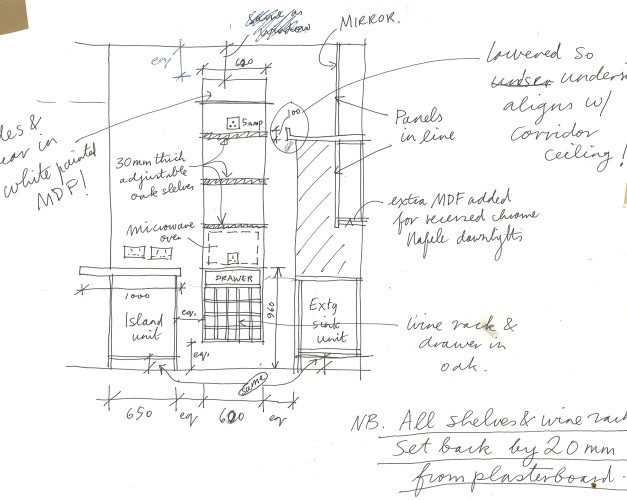 same as
window
MIRROR.
eq
600
lowered so
under undersi
aligns w/
Corridor
ceiling!
100
Panels
in line
5amp
des &
ear in
white painted
MDF!
30mm thick
adjustable
oak shelves
extra MDF added
for recessed chrome
Hafele downlights
microwave
oven
DRAWER
1000
960
Island
unit
eq.
Extg
sink
unit
wine rack &
drawer in
oak.
eq.
same
650
eq
600
eq
NB. All shelves & wine rack
set back by 20mm
from plasterboard.